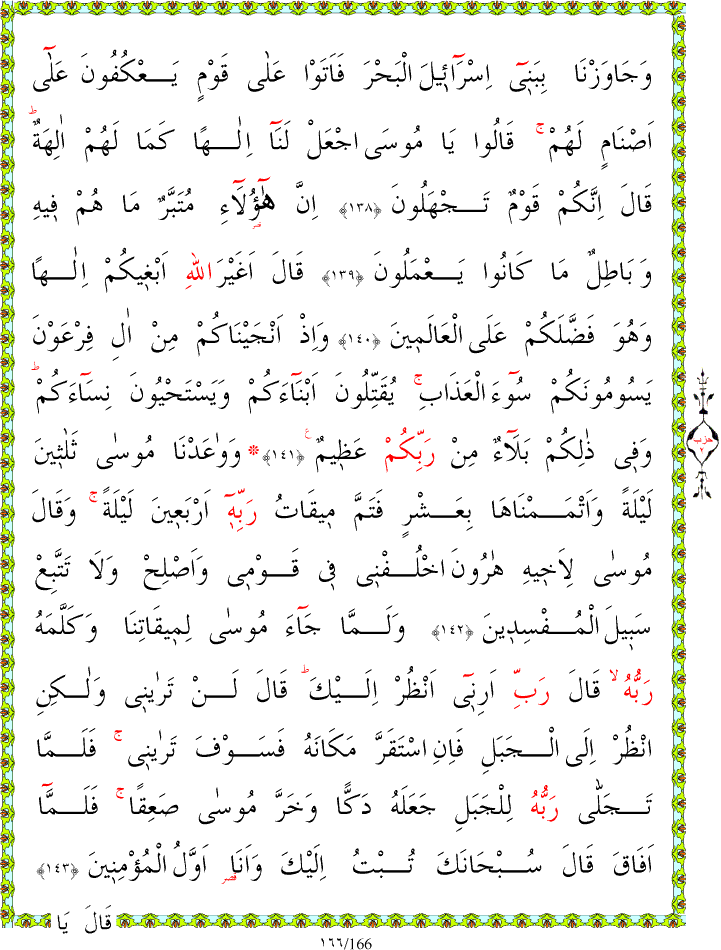 وَجَاوَزْنَا بِبَنٖٓى اِسْرَٓائٖلَ الْبَحْرَ فَاَتَوْا عَلٰى قَوْمٍ يَـعْكُفُونَ عَلٰٓى
اَصْنَامٍ لَهُمْۚ قَالُوا يَا مُوسَى اجْعَلْ لَنَٓا اِلٰـهًا كَمَا لَهُمْ اٰلِهَةٌؕ
قَالَ اِنَّكُمْ قَوْمٌ تَـجْهَلُونَ ﴿١٣٨﴾ اِنَّ هٰٓؤُ۬لَٓاءِ مُتَبَّرٌ مَا هُمْ فٖيهِ
وَبَاطِلٌ مَا كَانُوا يَـعْمَلُونَ ﴿١٣٩﴾ قَالَ اَغَيْرَ اللّٰهِ اَبْغٖيكُمْ اِلٰـهًا
وَهُوَ فَضَّلَكُمْ عَلَى الْعَالَمٖينَ ﴿١٤٠﴾ وَاِذْ اَنْجَيْنَاكُمْ مِنْ اٰلِ فِرْعَوْنَ
يَسُومُونَكُمْ سُٓوءَ الْعَذَابِۚ يُقَتِّلُونَ اَبْنَٓاءَكُمْ وَيَسْتَحْيُونَ نِسَٓاءَكُمْؕ
وَفٖى ذٰلِكُمْ بَلَٓاءٌ مِنْ رَبِّكُمْ عَظٖيمٌ ﴿١٤١﴾ * وَوٰعَدْنَا مُوسٰى ثَلٰثٖينَ
لَيْلَةً وَاَتْمَـمْنَاهَا بِعَـشْرٍ فَتَمَّ مٖيقَاتُ رَبِّهٖٓ اَرْبَعٖينَ لَيْلَةًۚ وَقَالَ
مُوسٰى لِاَخٖيهِ هٰرُونَ اخْلُـفْنٖى فٖى قَـوْمٖى وَاَصْلِحْ وَلَا تَتَّبِعْ
سَبٖيلَ الْمُـفْسِدٖينَ ﴿١٤٢﴾ وَلَـمَّا جَٓاءَ مُوسٰى لِمٖيقَاتِنَا وَكَلَّمَهُ
رَبُّهُۙ قَالَ رَبِّ اَرِنٖٓى اَنْظُرْ اِلَـيْكَؕ قَالَ لَـنْ تَرٰينٖى وَلٰـكِنِ
انْظُرْ اِلَى الْـجَبَلِ فَاِنِ اسْتَقَرَّ مَكَانَهُ فَسَـوْفَ تَرٰينٖىۚ فَلَـمَّا
تَـجَلّٰى رَبُّهُ لِلْجَبَلِ جَعَلَهُ دَكًّا وَخَرَّ مُوسٰى صَعِقًاۚ فَلَـمَّٓا
اَفَاقَ قَالَ سُـبْحَانَكَ تُـبْتُ اِلَيْكَ وَاَنَا۬ اَوَّلُ الْمُؤْمِنٖينَ ﴿١٤٣﴾
قَالَ يَا
١٦٦/166
حزب
٧